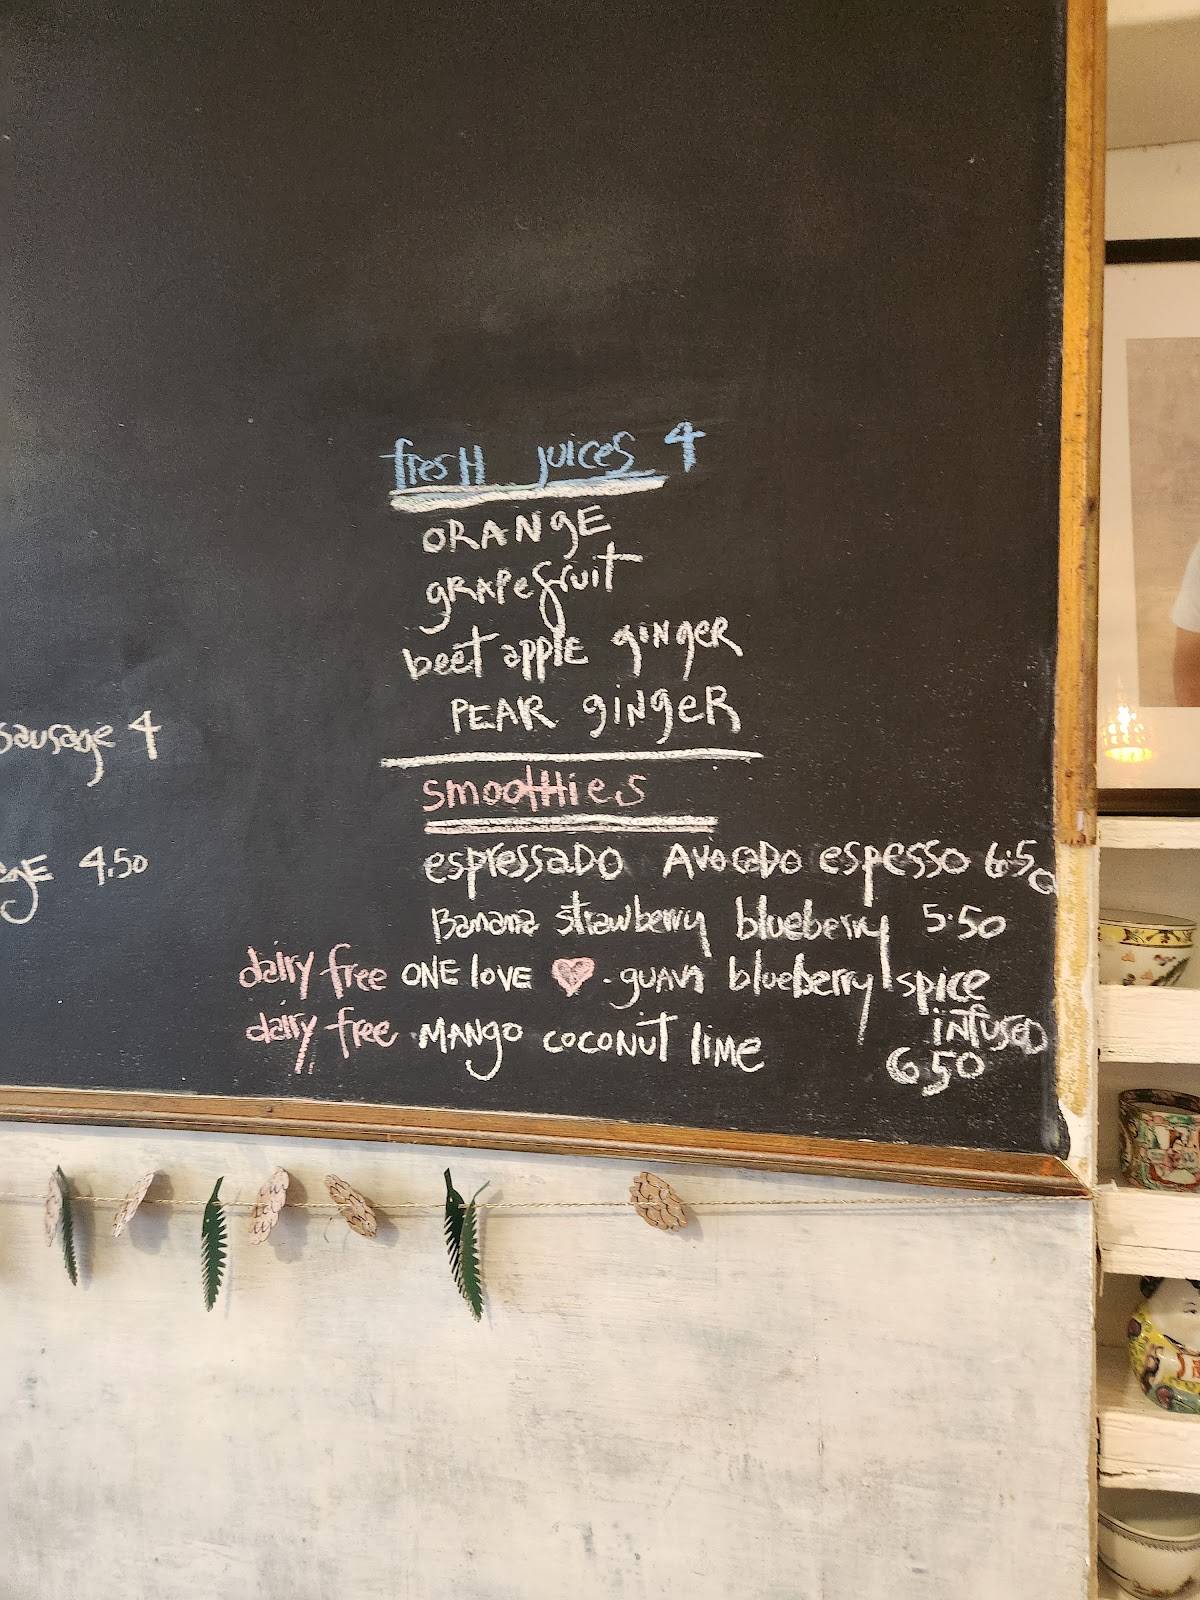 fresH juices 4
ORANgE
gRAPefruit
beet applE giNgeR
PEAR giNgeR
sausage 4
smootHies
espressaDO AvocaDo espesso 6.50
gE 4.50
Banana strawberry blueberry 5.50
dairy free ONE lOVE ♥ - guava blueberry spice
iNfuseD
dairy free MANgo coconut lime
6.50